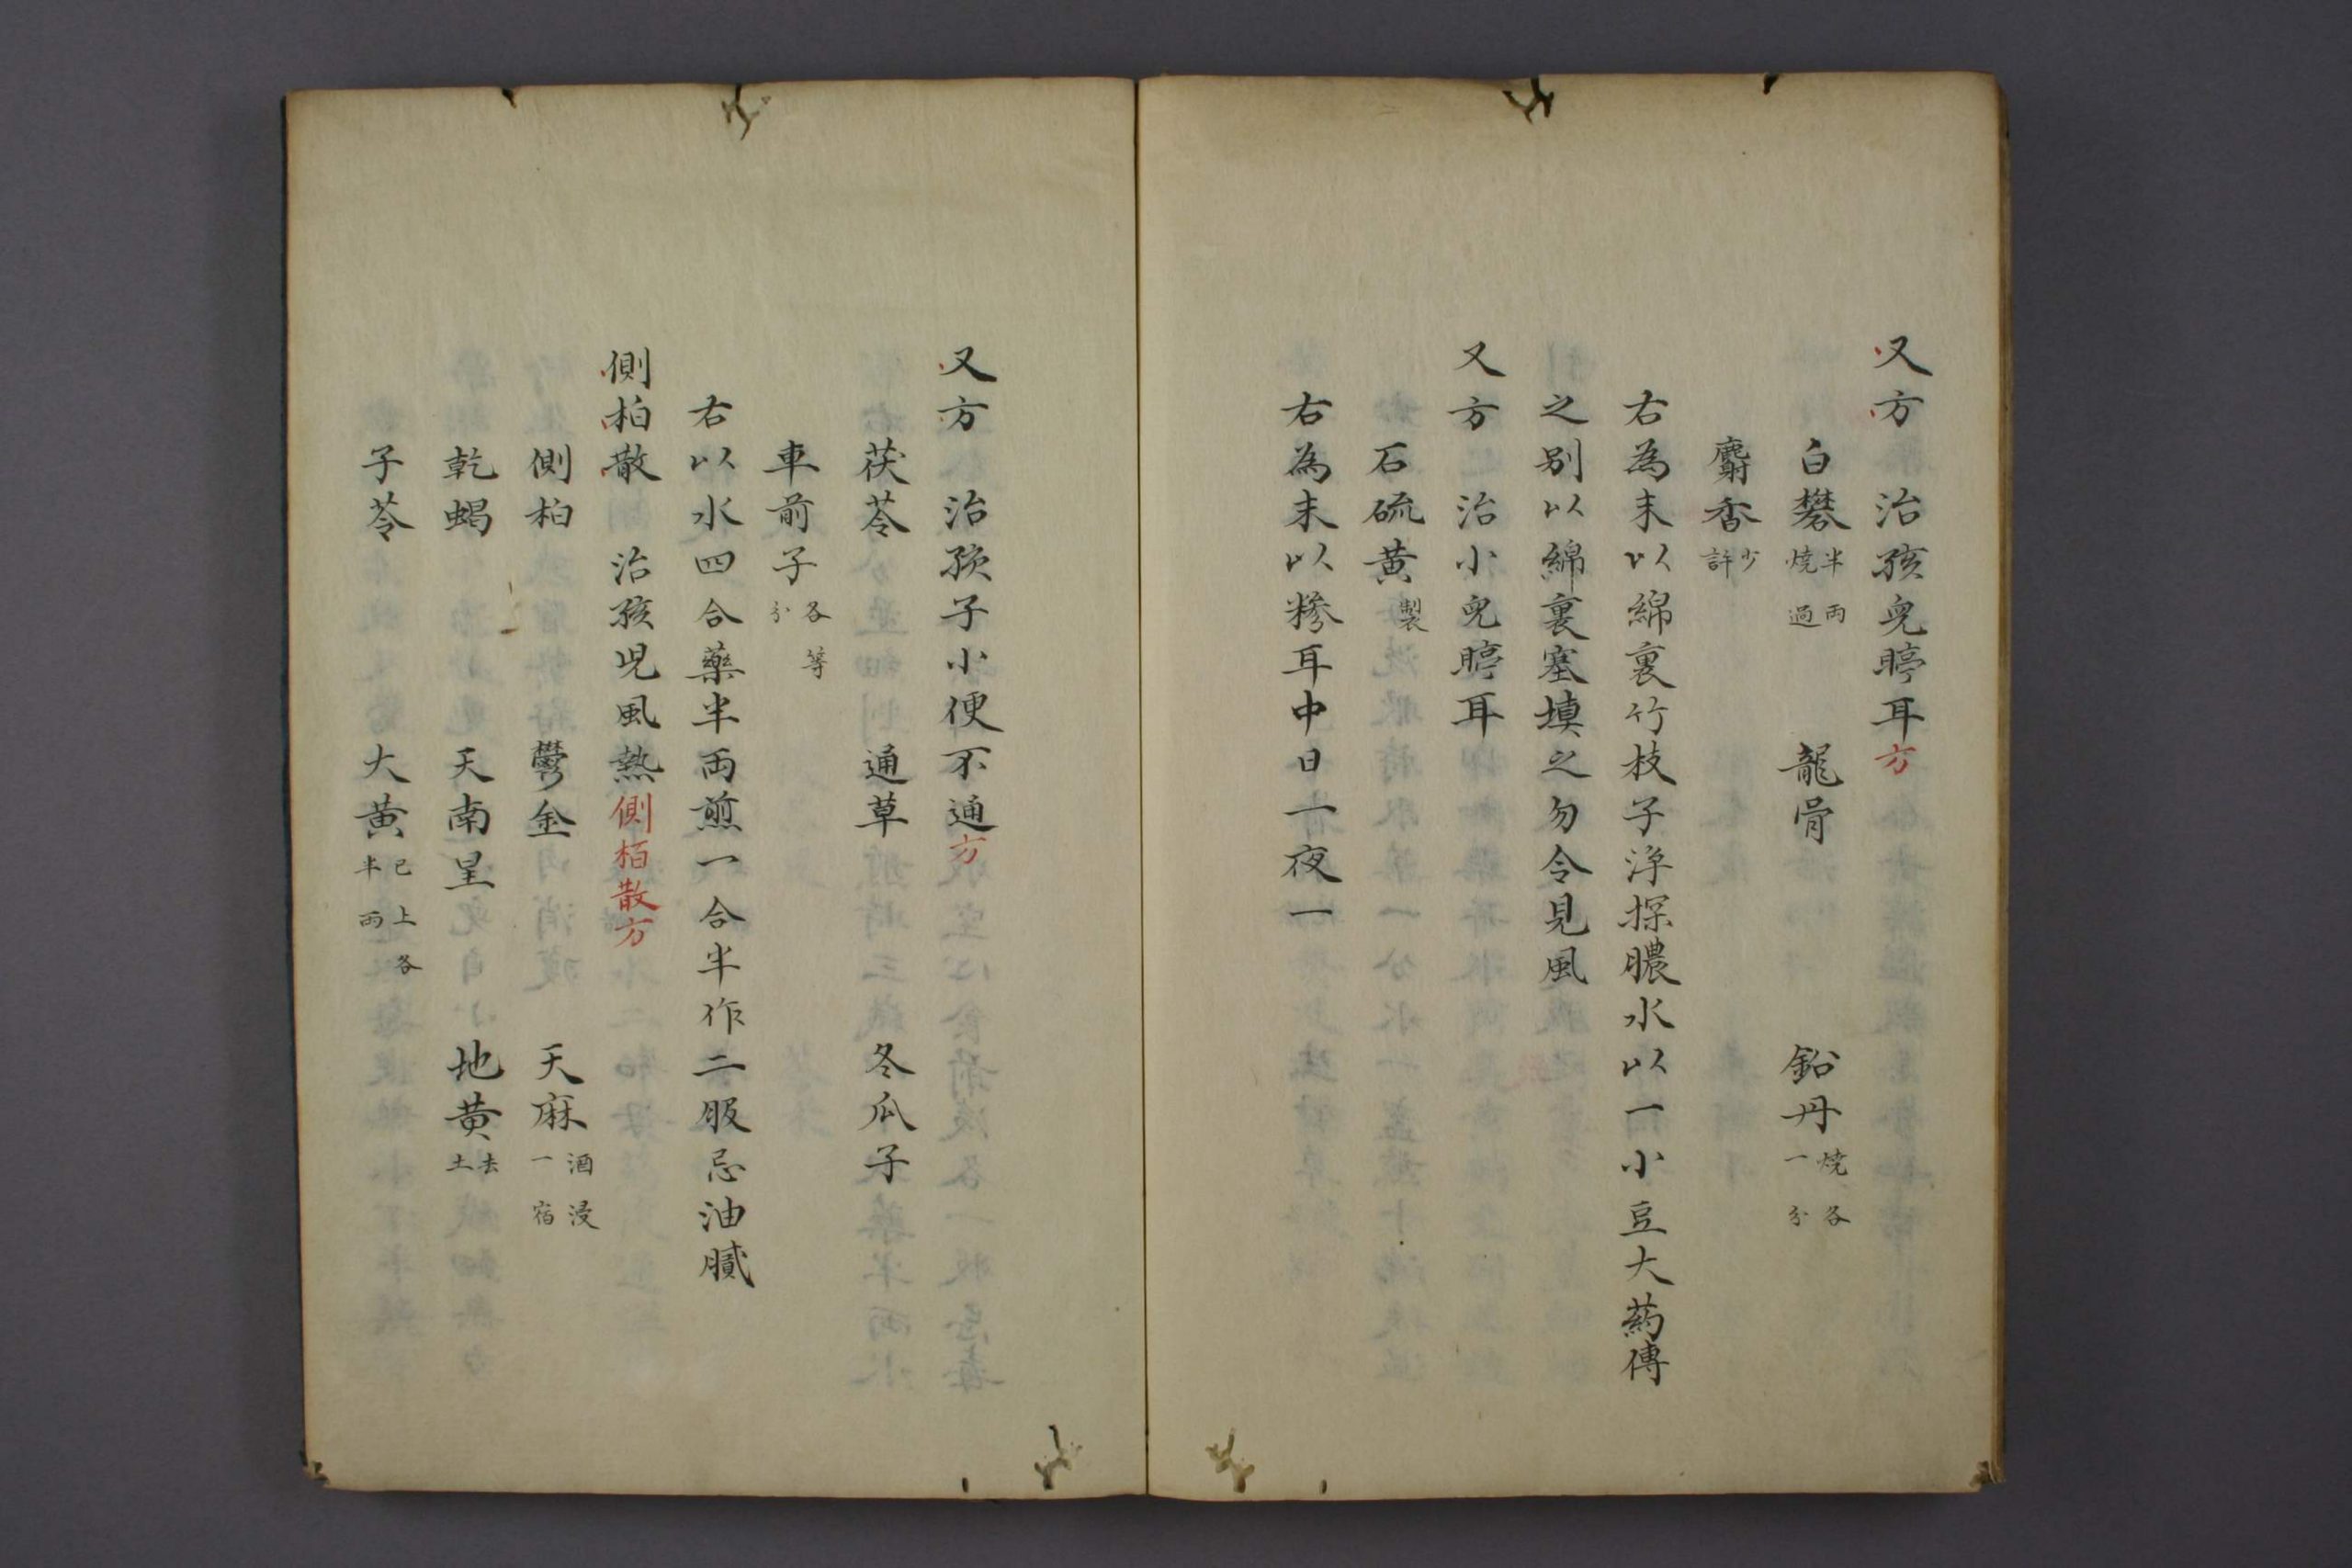 又方　治孩兒聤耳方
白礬半両燒過　龍骨　鉛丹燒各一分
麝香少許
右為末以綿裏竹枝子浄探膿水以一小豆大药傅
之别以綿裏塞填之勿令見風
又方　治小兒聤耳
石硫黄製
右為末以糝耳中日一夜一
又方　治孩子小便不通方
茯苓　通草　冬瓜子
車前子各等分
右以水四合藥半両煎一合半作二服忌油膩
側柏散　治孩児風熱側栢散方
側柏　鬱金　天麻酒浸一宿
乾蝎　天南星　地黄去土
子苓　大黄已上各半両